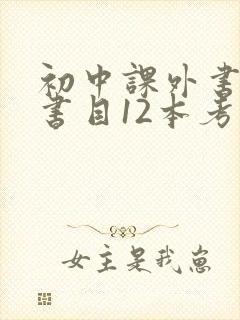 初中課外書
書目12本考
女主是我崽